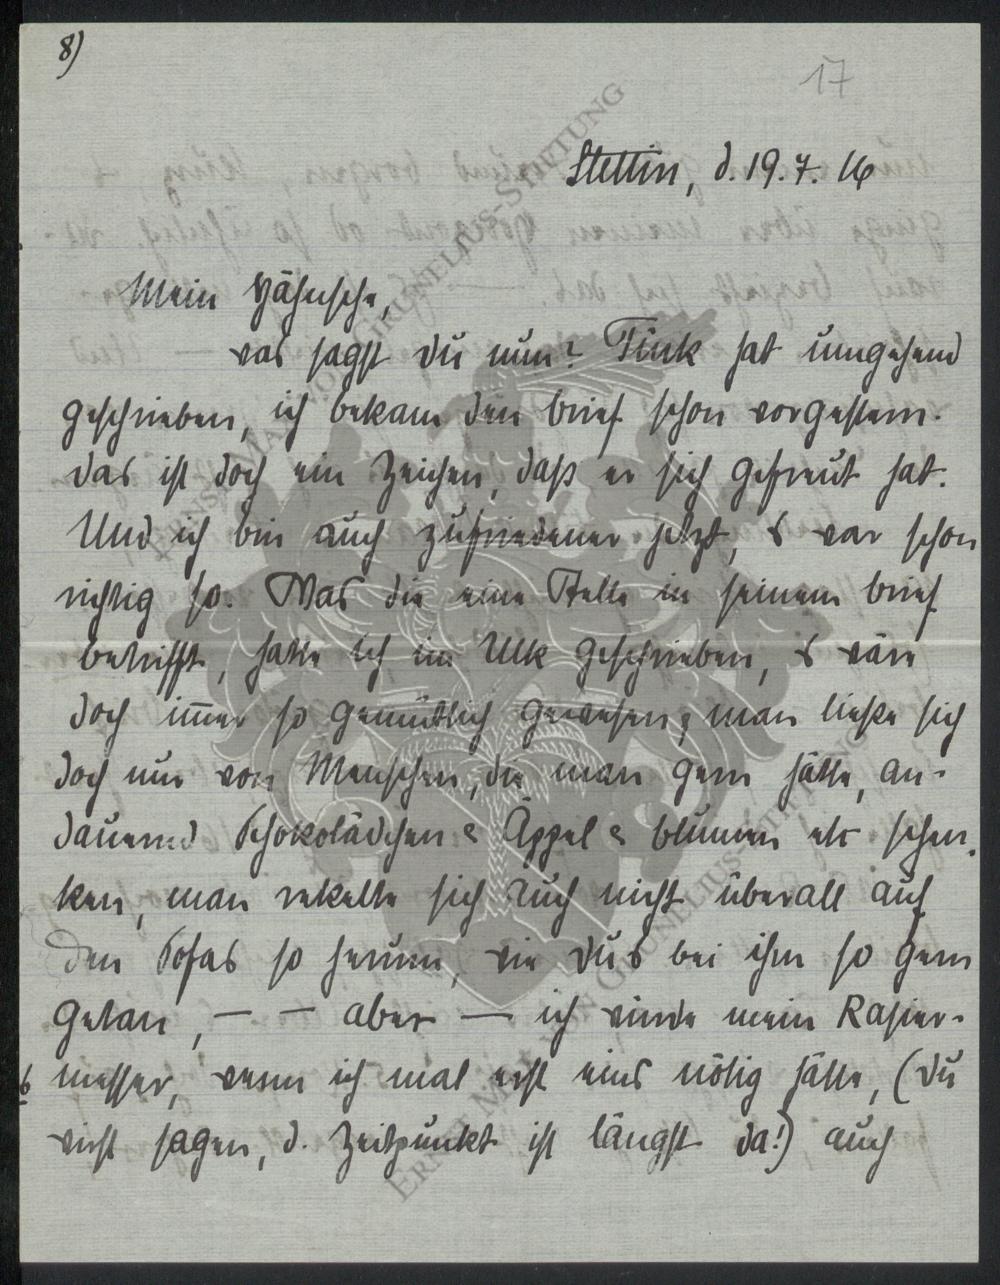 8)
17
Stettin, d. 19.7.16
Mein Hähnsche,
was sagst Du nun? Fink hat umgehend
geschrieben, ich bekam den Brief schon vorgestern.
Das ist doch ein Zeichen, daß er sich gefreut hat.
Und ich bin auch zufriedener jetzt, s war schon
richtig so. Was die eine Stelle in seinem Brief
betrifft, hatte ich im Ulk geschrieben, s wäre
doch im̅er so gemütlich gewesen; man ließe sich
doch nur von Menschen, die man gern hätte, an-
dauernd Schokolädchen & Äppel & Blumen etc schen-
ken, man rekelte sich auch nicht überall auf
den Sofas so herum, wie Du's bei ihm so gern
getan, — — aber — ich würde mein Rasier-
messer, wenn ich mal erst eins nötig hätte, (Du
wirst sagen, d. Zeitpunkt ist längst da!) auch
ERNST MAX VON GRUNELIUS-STIFTUNG
ERNST MAX VON GRUNELIUS-STIFTUNG